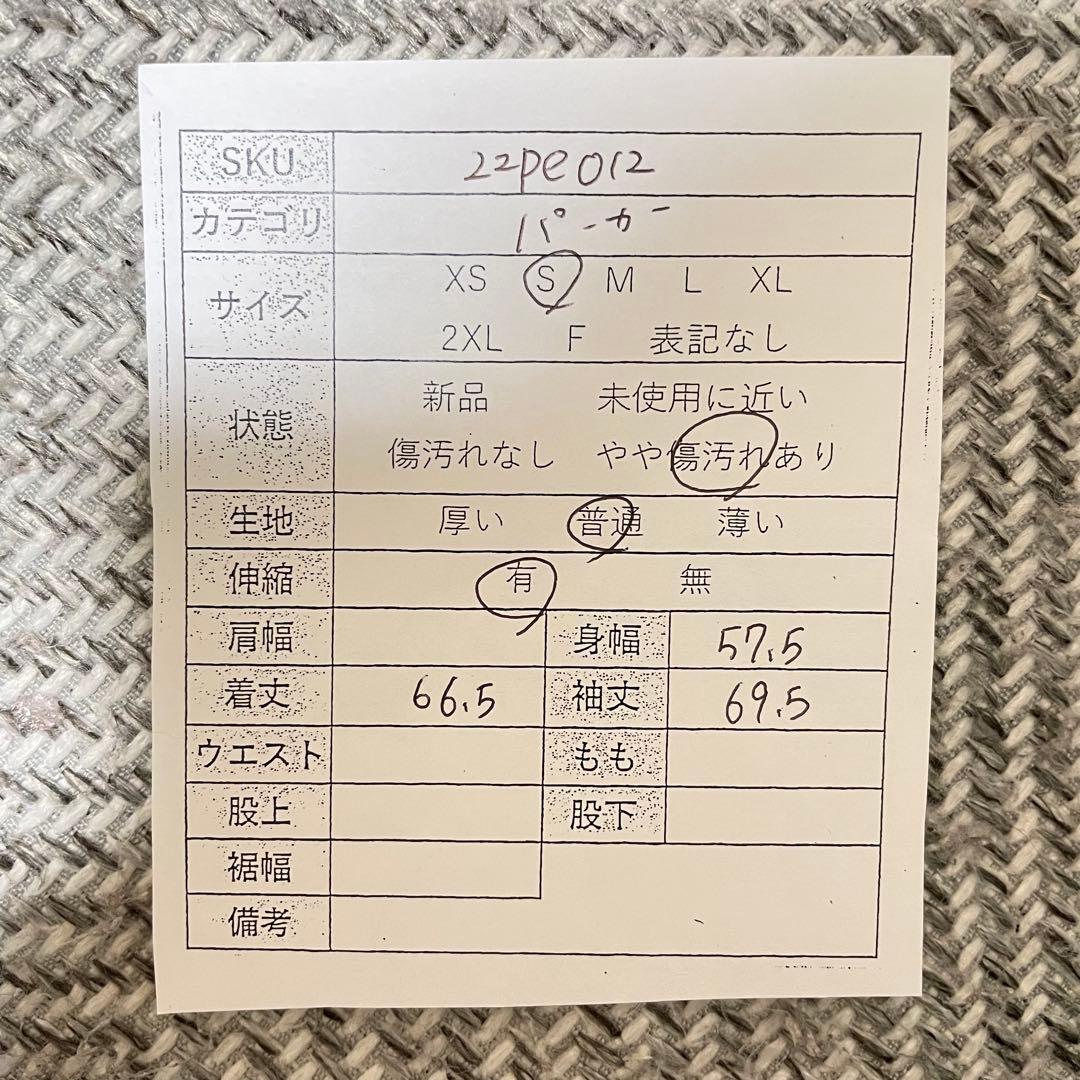 SKU 22pe012
カテゴリ パーカー
サイズ XS S M L XL
2XL F 表記なし
状態 新品 未使用に近い
傷汚れなし やや傷汚れあり
生地 厚い 普通 薄い
伸縮 有 無
肩幅 身幅 57.5
着丈 66.5 袖丈 69.5
ウエスト もも
股上 股下
裾幅
備考